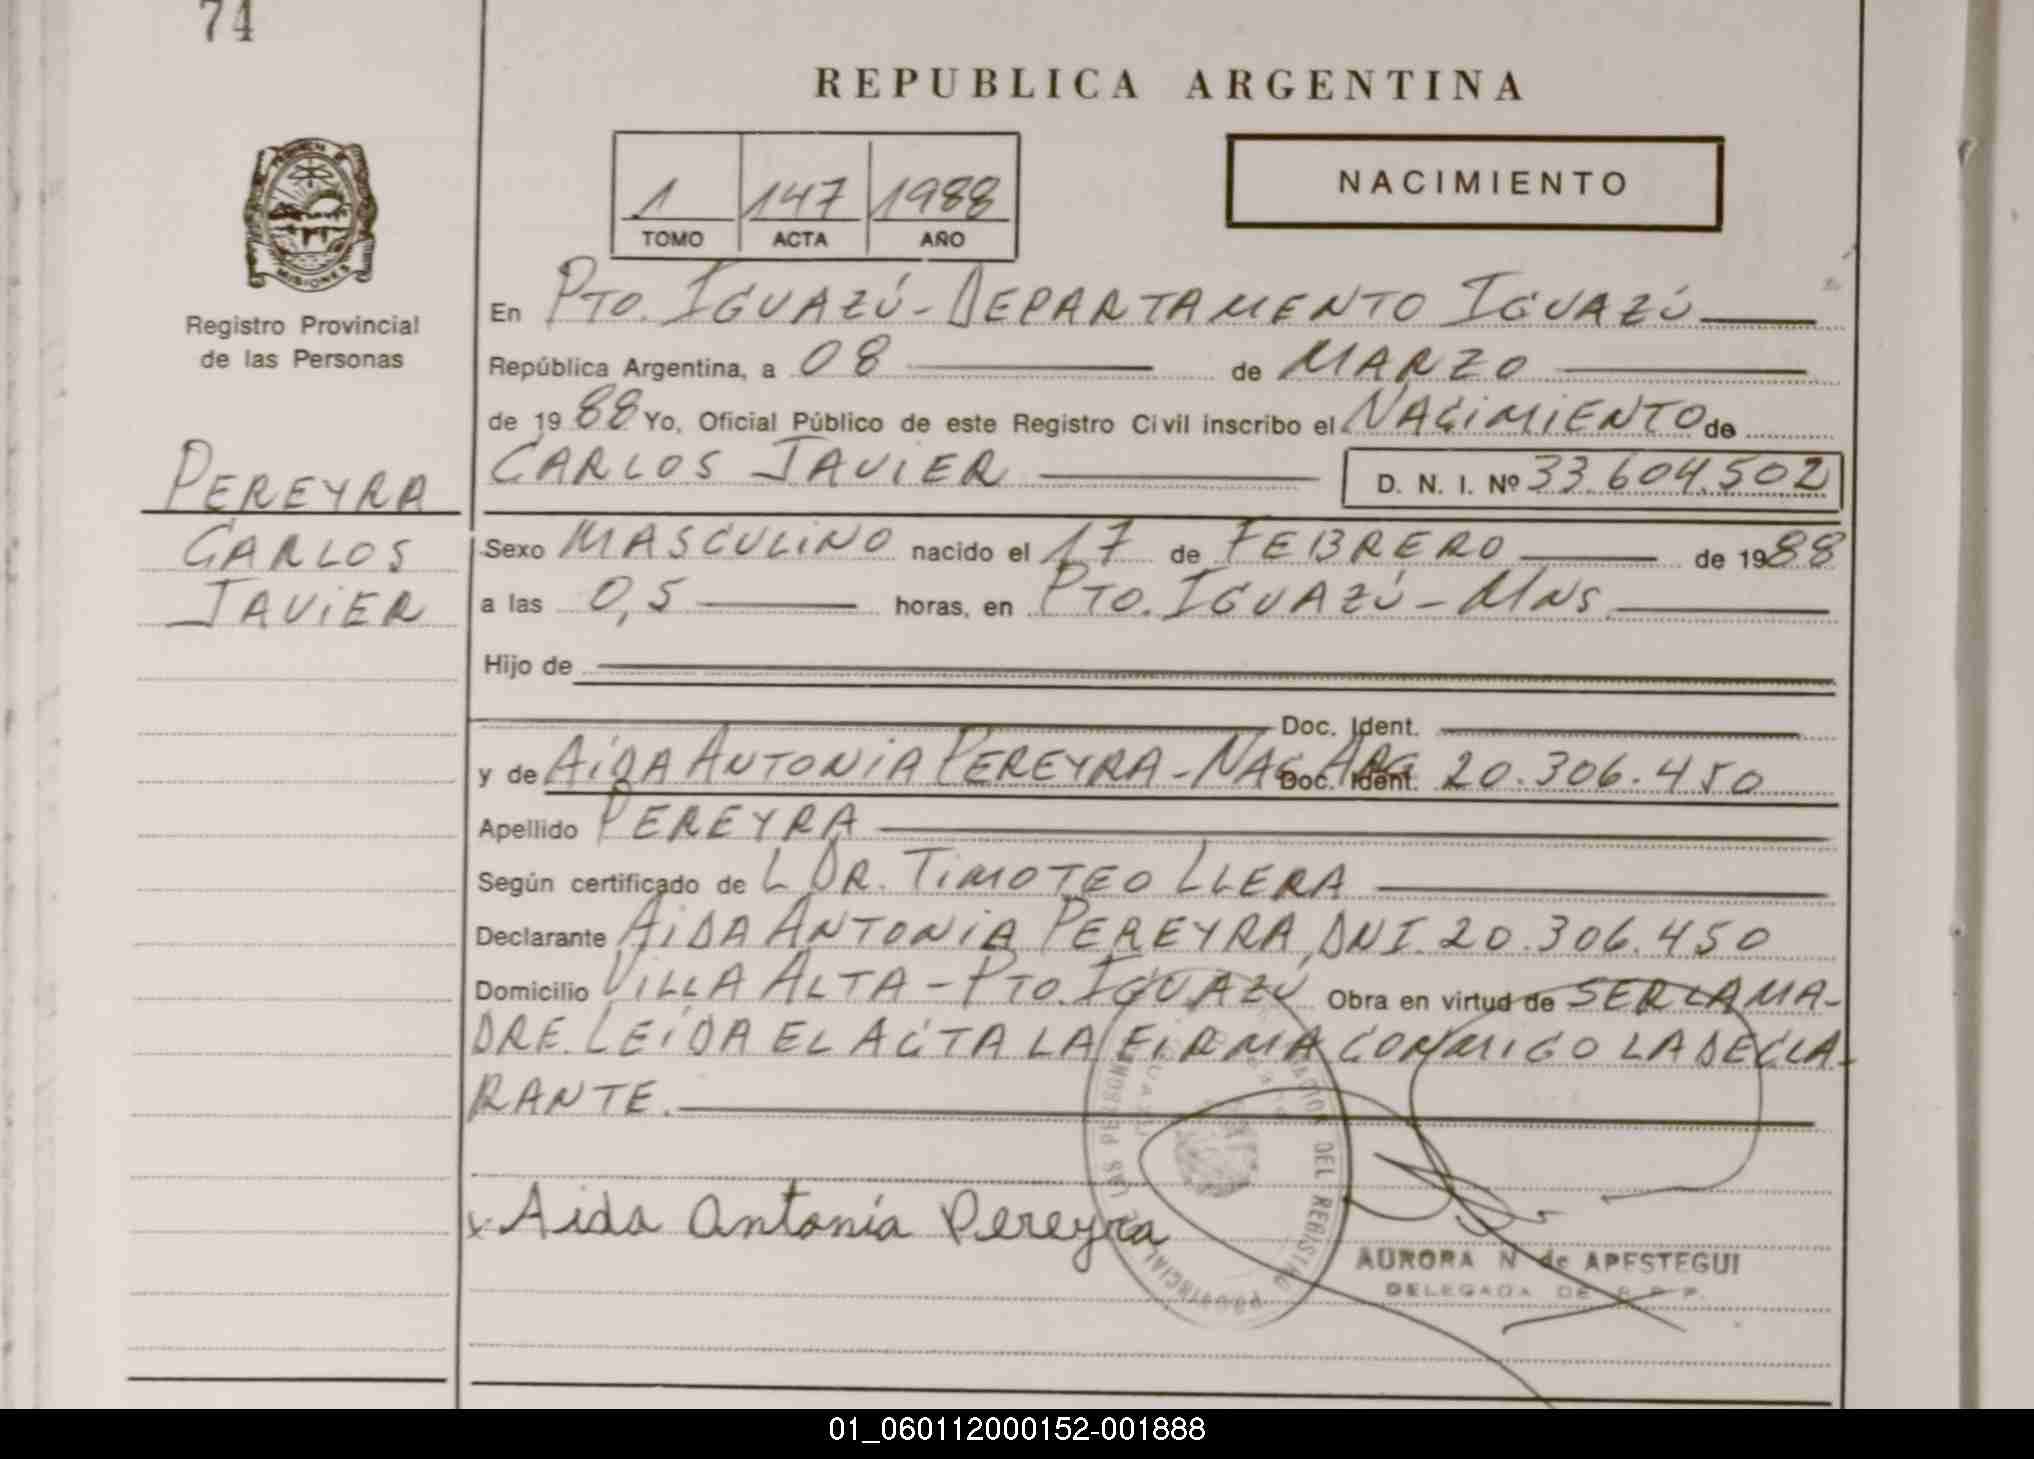 74
REPUBLICA ARGENTINA
1 147 1988
TOMO ACTA AÑO
NACIMIENTO
MISIONES
Registro Provincial
de las Personas
PEREYRA
CARLOS
JAVIER
En PTO. IGUAZÚ - DEPARTAMENTO IGUAZÚ
República Argentina, a 08 de MARZO
de 1988 Yo, Oficial Público de este Registro Civil inscribo el NACIMIENTO de
CARLOS JAVIER D. N. I. Nº 33.604.502
Sexo MASCULINO nacido el 17 de FEBRERO de 1988
a las 0,5 horas, en PTO. IGUAZÚ - MNS.
Hijo de
Doc. Ident.
y de AIDA ANTONIA PEREYRA - NAC. ARG Doc. Ident. 20.306.450
Apellido PEREYRA
Según certificado de L DR. TIMOTEO LLERA
Declarante AIDA ANTONIA PEREYRA, DNI. 20.306.450
Domicilio VILLA ALTA - PTO. IGUAZÚ Obra en virtud de SER LA MA-
DRE. LEÍDA EL ACTA LA FIRMA CONMIGO LA DECLA-
RANTE.
x Aida Antonia Pereyra
PROVINCIAL DE LAS PERSONAS
DEL REGISTRO
AURORA N de APESTEGUI
DELEGADA DE R. P. P.
01_060112000152-001888